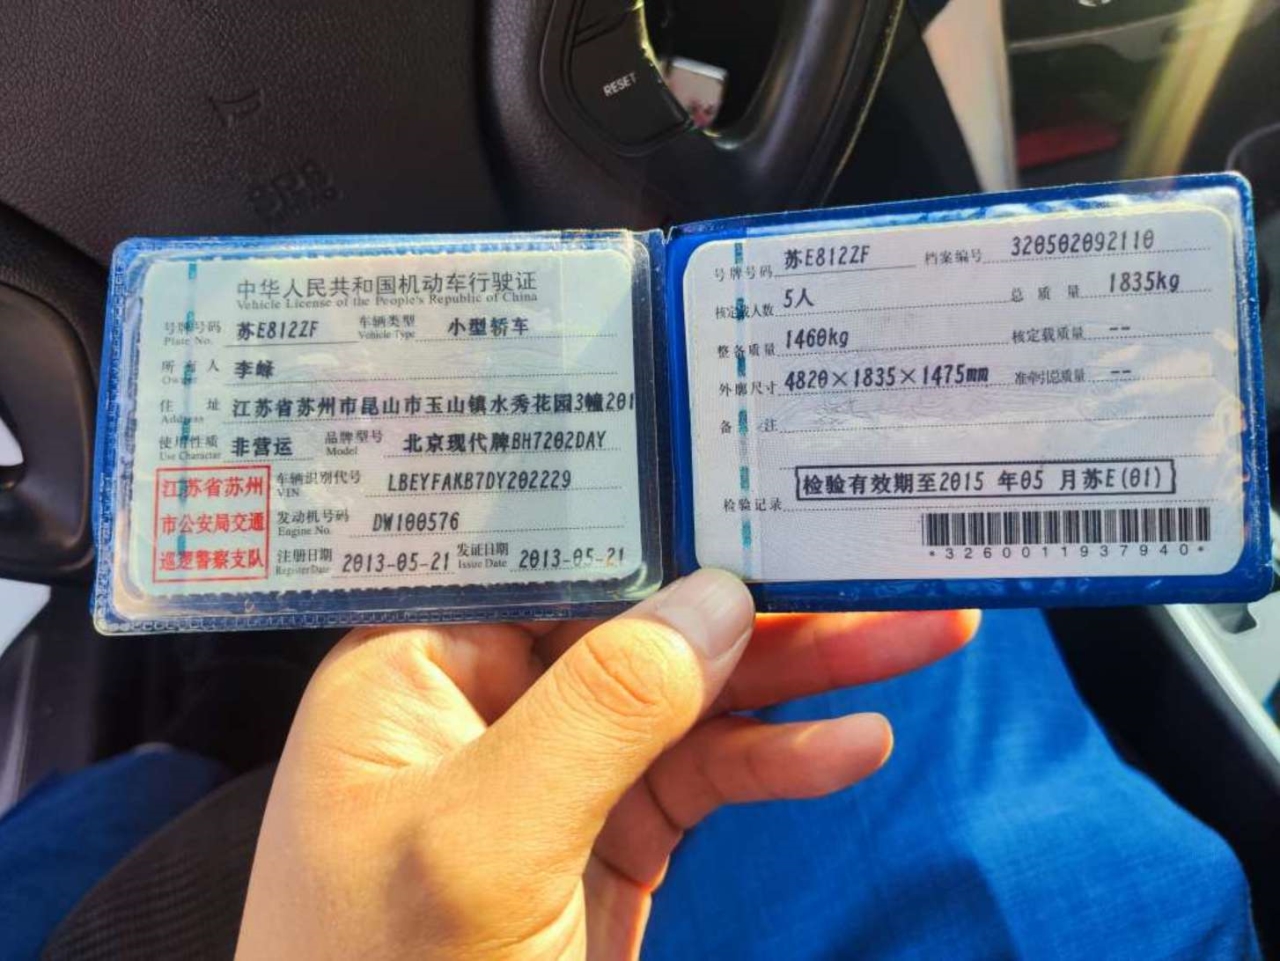 RESET
中华人民共和国机动车行驶证
Vehicle License of the People's Republic of China
号牌号码 苏E812ZF 车辆类型 小型轿车
Plate No. Vehicle Type
所有人 李峰
Owner
住址 江苏省苏州市昆山市玉山镇水秀花园3幢201
Address
使用性质 非营运 品牌型号 北京现代牌BH7202DAY
Use Character Model
江苏省苏州
市公安局交通
巡逻警察支队
车辆识别代号 LBEYFAKB7DY202229
VIN
发动机号码 DW100576
Engine No.
注册日期 2013-05-21 发证日期 2013-05-21
Register Date Issue Date
号牌号码 苏E812ZF 档案编号 320502092110
核定载人数 5人 总质量 1835kg
整备质量 1460kg 核定载质量 --
外廓尺寸 4820×1835×1475mm 准牵引总质量 --
备注
检验记录 检验有效期至2015 年05 月苏E(01)
*3260011937940*